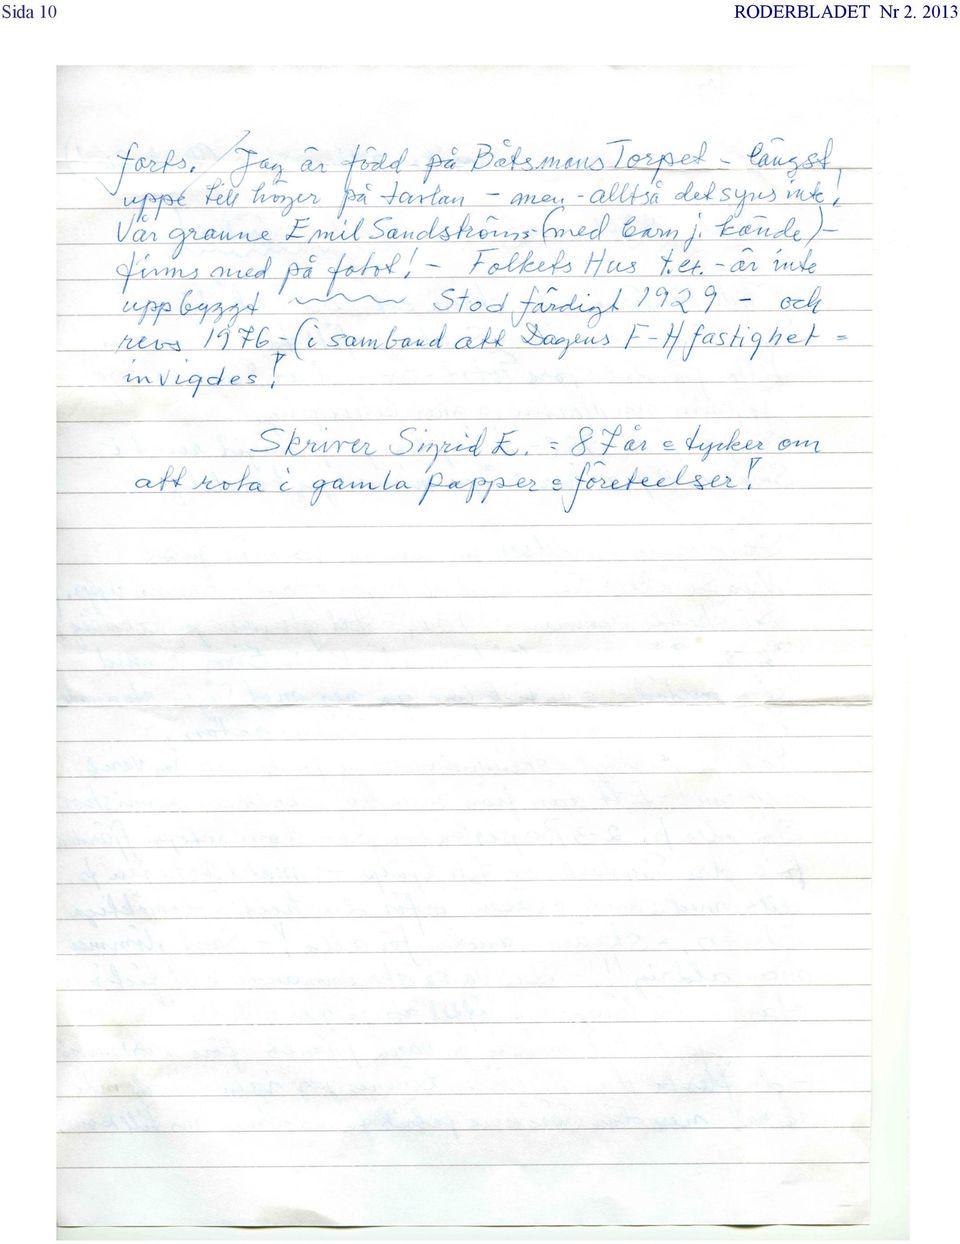 Sida 10 RODERBLADET Nr 2. 2013
forts. Jag är född på BåtsmansTorpet – längst
uppe till höger på tavlan – men – alltså det syns inte!
Vår granne Emil Sandströms – (med barn j. kände) –
finns med på fotot! – Folkets Hus t.ex. – är inte
uppbyggt Stod färdigt 1929 – och
revs 1976 – (i samband att Dagens F-H fastighet =
invigdes!
Skriver Sigrid E. = 87 år = tycker om
att rota i gamla papper = företeelser!